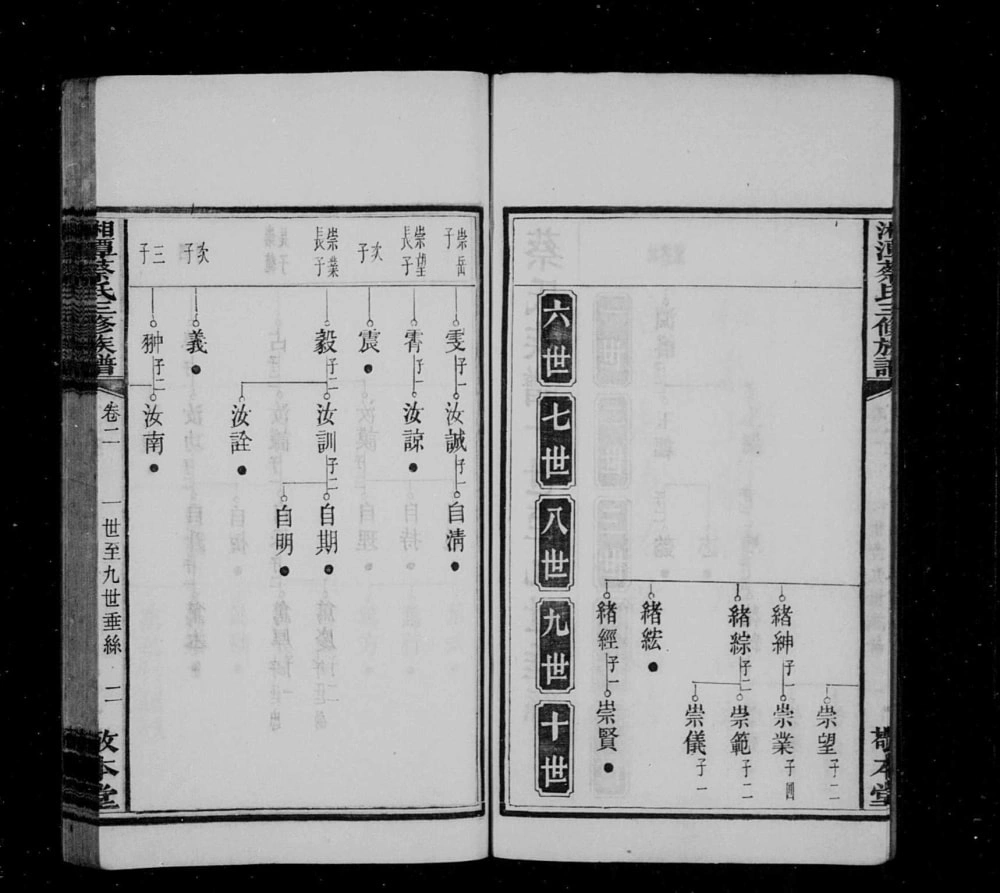 湘潭蔡氏三修族譜
敬本堂
崇望 子二
緒紳 子一 崇業 子四
緒綜 子二 崇範 子二
崇儀 子一
緒紘
緒經 子一 崇賢
六世 七世 八世 九世 十世
崇岳子 雯 子一 汝誠 子一 自清
崇望長子 霄 子一 汝諒
次子 震
崇業長子 毅 子二 汝訓 子二 自期
自明
汝詮
次子 義
三子 翀 子二 汝南
湘潭蔡氏三修族譜
卷二
一世至九世垂絲
二
敬本堂